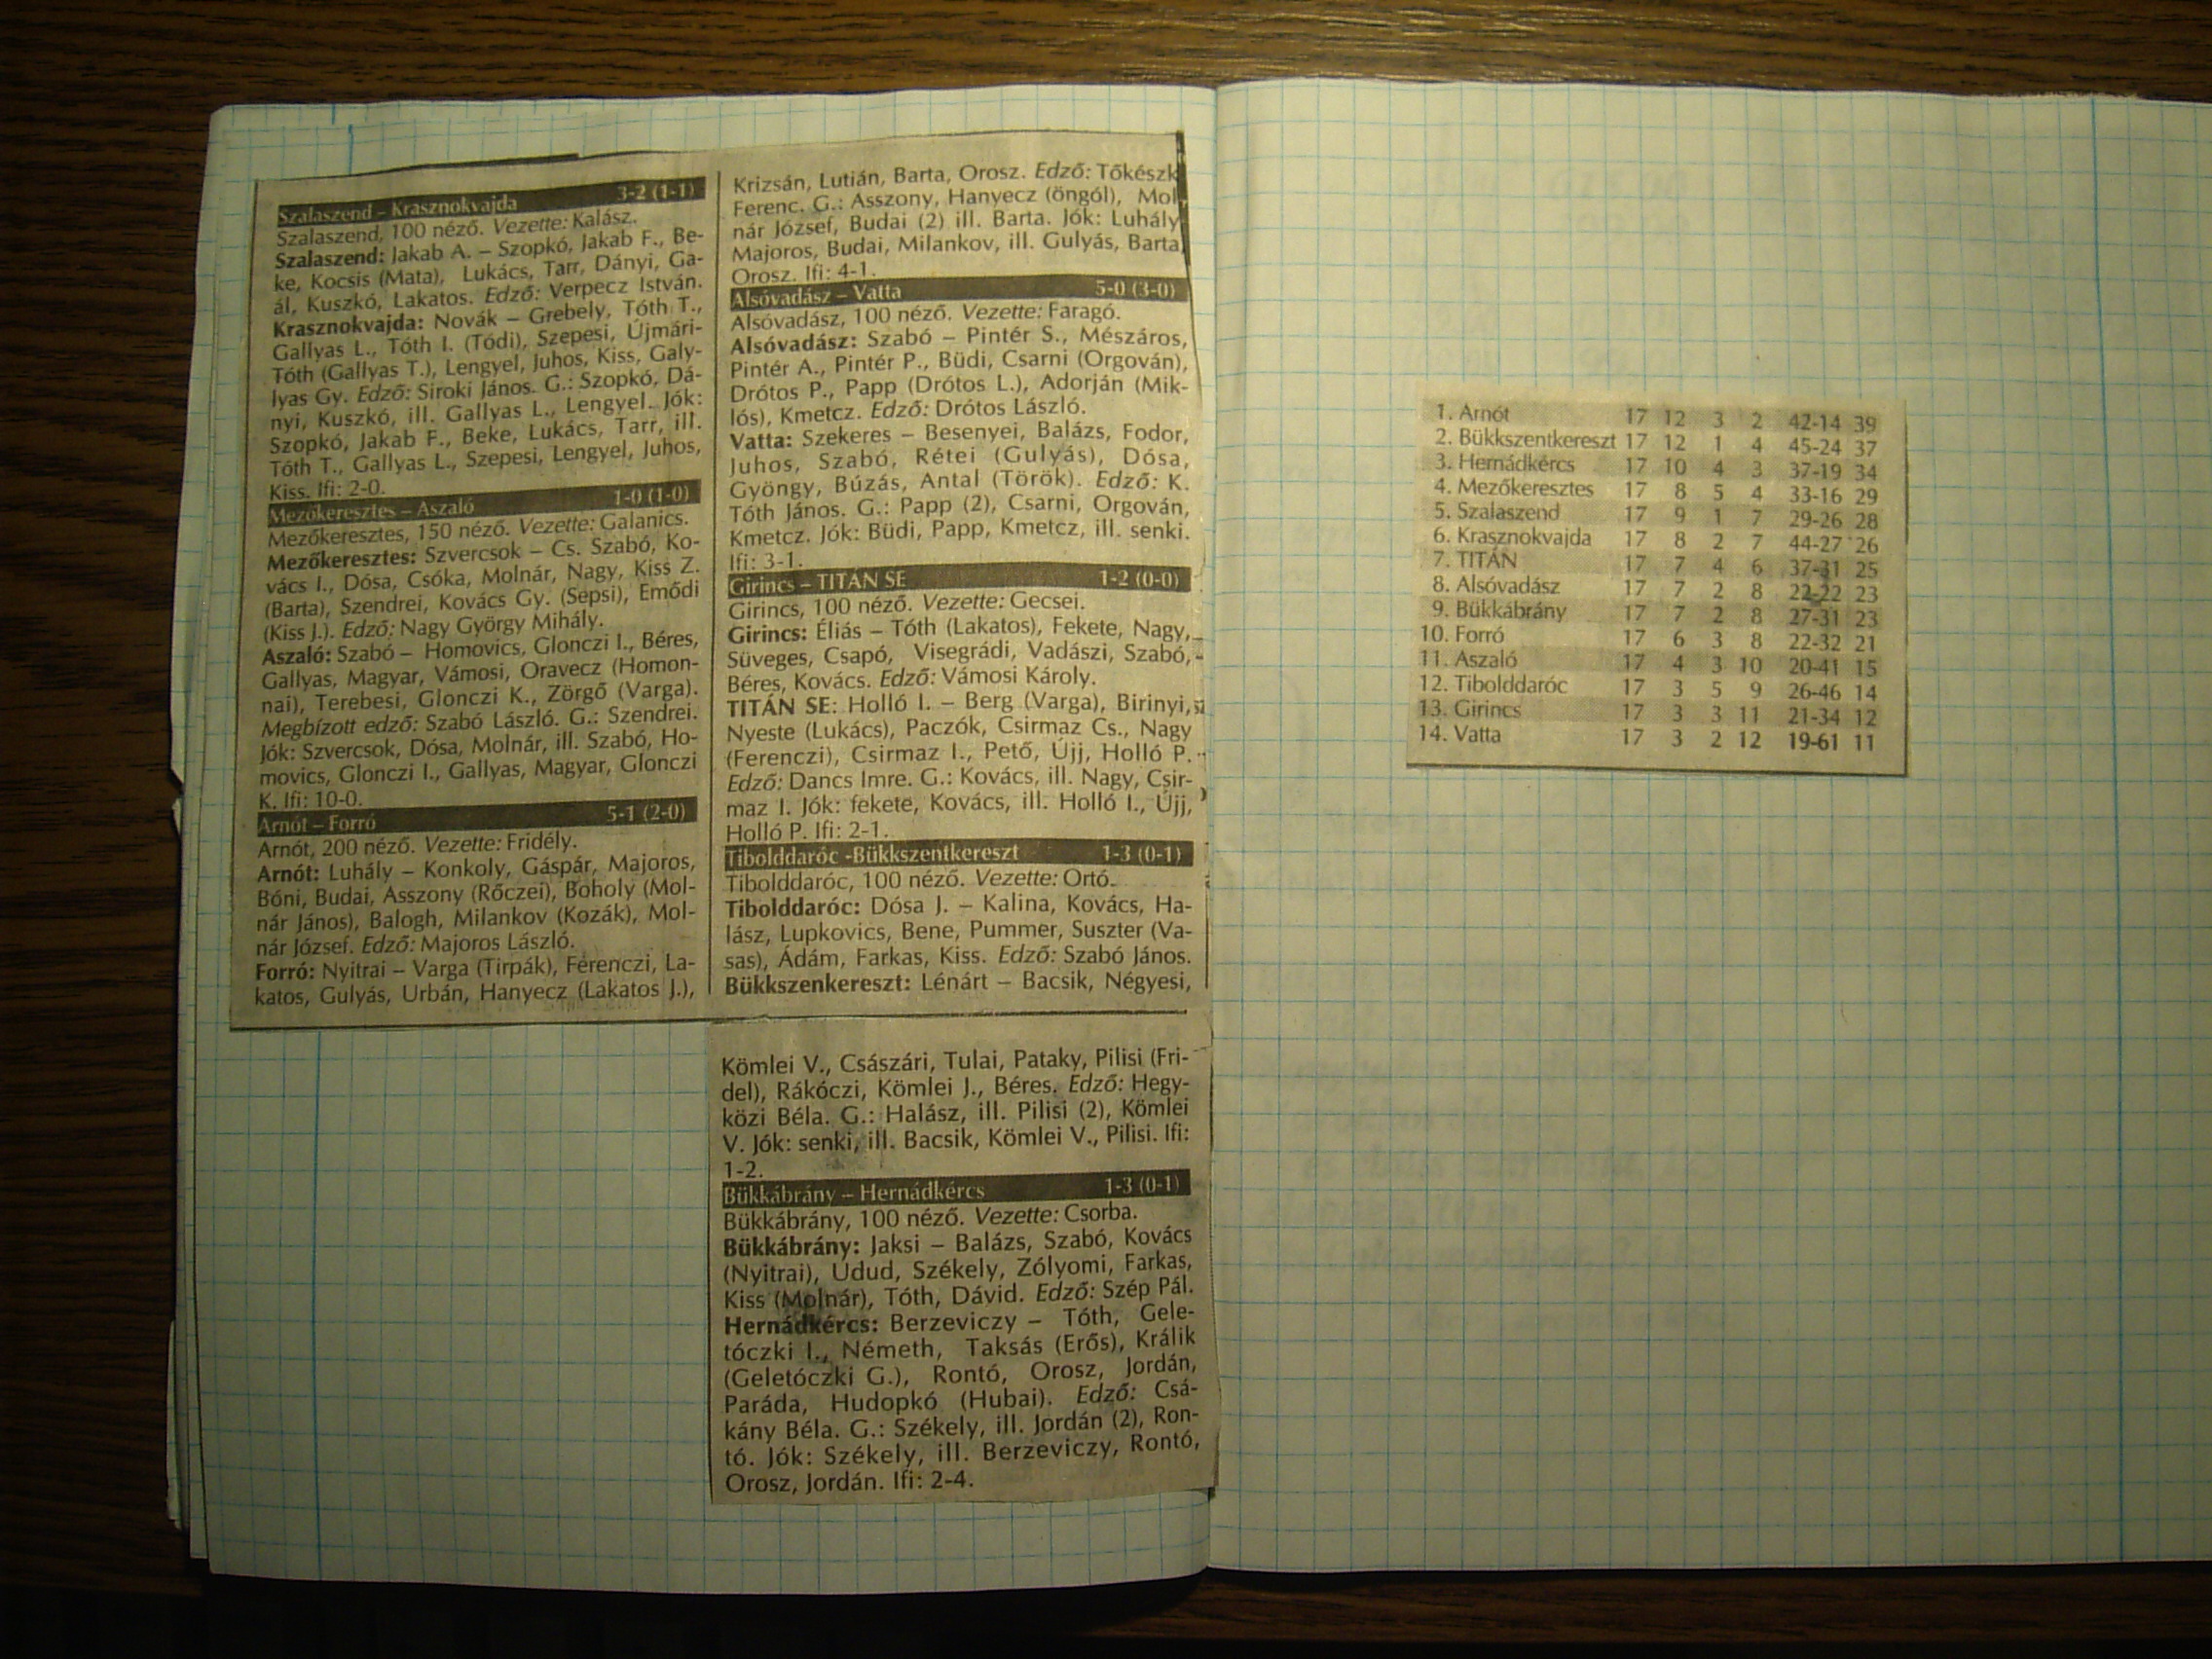 Szalaszend – Krasznokvajda 3-2 (1-1)
Szalaszend, 100 néző. Vezette: Kalász.
Szalaszend: Jakab A. – Szopkó, Jakab F., Be-
ke, Kocsis (Mata), Lukács, Tarr, Dányi, Ga-
ál, Kuszkó, Lakatos. Edző: Verpecz István.
Krasznokvajda: Novák – Grebely, Tóth T.,
Gallyas L., Tóth I. (Tódi), Szepesi, Újmári-
Tóth (Gallyas T.), Lengyel, Juhos, Kiss, Galy-
lyas Gy. Edző: Siroki János. G.: Szopkó, Dá-
nyi, Kuszkó, ill. Gallyas L., Lengyel. Jók:
Szopkó, Jakab F., Beke, Lukács, Tarr, ill.
Tóth T., Gallyas L., Szepesi, Lengyel, Juhos,
Kiss. Ifi: 2-0.
Mezőkeresztes – Aszaló 1-0 (1-0)
Mezőkeresztes, 150 néző. Vezette: Galanics.
Mezőkeresztes: Szvercsok – Cs. Szabó, Ko-
vács I., Dósa, Csóka, Molnár, Nagy, Kiss Z.
(Barta), Szendrei, Kovács Gy. (Sepsi), Emődi
(Kiss J.). Edző: Nagy György Mihály.
Aszaló: Szabó – Homovics, Glonczi I., Béres,
Gallyas, Magyar, Vámosi, Oravecz (Homon-
nai), Terebesi, Glonczi K., Zörgő (Varga).
Megbízott edző: Szabó László. G.: Szendrei.
Jók: Szvercsok, Dósa, Molnár, ill. Szabó, Ho-
movics, Glonczi I., Gallyas, Magyar, Glonczi
K. Ifi: 10-0.
Arnót – Forró 5-1 (2-0)
Arnót, 200 néző. Vezette: Fridély.
Arnót: Luhály – Konkoly, Gáspár, Majoros,
Bóni, Budai, Asszony (Rőczei), Boholy (Mol-
nár János), Balogh, Milankov (Kozák), Mol-
nár József. Edző: Majoros László.
Forró: Nyitrai – Varga (Tirpák), Ferenczi, La-
katos, Gulyás, Urbán, Hanyecz (Lakatos J.),
Krizsán, Lutián, Barta, Orosz. Edző: Tőkészk
Ferenc. G.: Asszony, Hanyecz (öngól), Mol
nár József, Budai (2) ill. Barta. Jók: Luhály
Majoros, Budai, Milankov, ill. Gulyás, Barta
Orosz. Ifi: 4-1.
Alsóvadász – Vatta 5-0 (3-0)
Alsóvadász, 100 néző. Vezette: Faragó.
Alsóvadász: Szabó – Pintér S., Mészáros,
Pintér A., Pintér P., Büdi, Csarni (Orgován),
Drótos P., Papp (Drótos L.), Adorján (Mik-
lós), Kmetcz. Edző: Drótos László.
Vatta: Szekeres – Besenyei, Balázs, Fodor,
Juhos, Szabó, Rétei (Gulyás), Dósa,
Gyöngy, Búzás, Antal (Török). Edző: K.
Tóth János. G.: Papp (2), Csarni, Orgován,
Kmetcz. Jók: Büdi, Papp, Kmetcz, ill. senki.
Ifi: 3-1.
Girincs – TITÁN SE 1-2 (0-0)
Girincs, 100 néző. Vezette: Gecsei.
Girincs: Éliás – Tóth (Lakatos), Fekete, Nagy,
Süveges, Csapó, Visegrádi, Vadászi, Szabó,
Béres, Kovács. Edző: Vámosi Károly.
TITÁN SE: Holló I. – Berg (Varga), Birinyi,
Nyeste (Lukács), Paczók, Csirmaz Cs., Nagy
(Ferenczi), Csirmaz I., Pető, Újj, Holló P.
Edző: Dancs Imre. G.: Kovács, ill. Nagy, Csir-
maz I. Jók: fekete, Kovács, ill. Holló I., Újj,
Holló P. Ifi: 2-1.
Tibolddaróc -Bükkszentkereszt 1-3 (0-1)
Tibolddaróc, 100 néző. Vezette: Ortó.
Tibolddaróc: Dósa J. – Kalina, Kovács, Ha-
lász, Lupkovics, Bene, Pummer, Suszter (Va-
sas), Ádám, Farkas, Kiss. Edző: Szabó János.
Bükkszenkereszt: Lénárt – Bacsik, Négyesi,
Kömlei V., Császári, Tulai, Pataky, Pilisi (Fri-
del), Rákóczi, Kömlei J., Béres. Edző: Hegy-
közi Béla. G.: Halász, ill. Pilisi (2), Kömlei
V. Jók: senki, ill. Bacsik, Kömlei V., Pilisi. Ifi:
1-2.
Bükkábrány – Hernádkércs 1-3 (0-1)
Bükkábrány, 100 néző. Vezette: Csorba.
Bükkábrány: Jaksi – Balázs, Szabó, Kovács
(Nyitrai), Udud, Székely, Zólyomi, Farkas,
Kiss (Molnár), Tóth, Dávid. Edző: Szép Pál.
Hernádkércs: Berzeviczy – Tóth, Gele-
tóczki I., Németh, Taksás (Erős), Králik
(Geletóczki G.), Rontó, Orosz, Jordán,
Paráda, Hudopkó (Hubai). Edző: Csá-
kány Béla. G.: Székely, ill. Jordán (2), Ron-
tó. Jók: Székely, ill. Berzeviczy, Rontó,
Orosz, Jordán. Ifi: 2-4.
1. Arnót 17 12 3 2 42-14 39
2. Bükkszentkereszt 17 12 1 4 45-24 37
3. Hernádkércs 17 10 4 3 37-19 34
4. Mezőkeresztes 17 8 5 4 33-16 29
5. Szalaszend 17 9 1 7 29-26 28
6. Krasznokvajda 17 8 2 7 44-27 26
7. TITÁN 17 7 4 6 37-31 25
8. Alsóvadász 17 7 2 8 22-22 23
9. Bükkábrány 17 7 2 8 27-31 23
10. Forró 17 6 3 8 22-32 21
11. Aszaló 17 4 3 10 20-41 15
12. Tibolddaróc 17 3 5 9 26-46 14
13. Girincs 17 3 3 11 21-34 12
14. Vatta 17 3 2 12 19-61 11